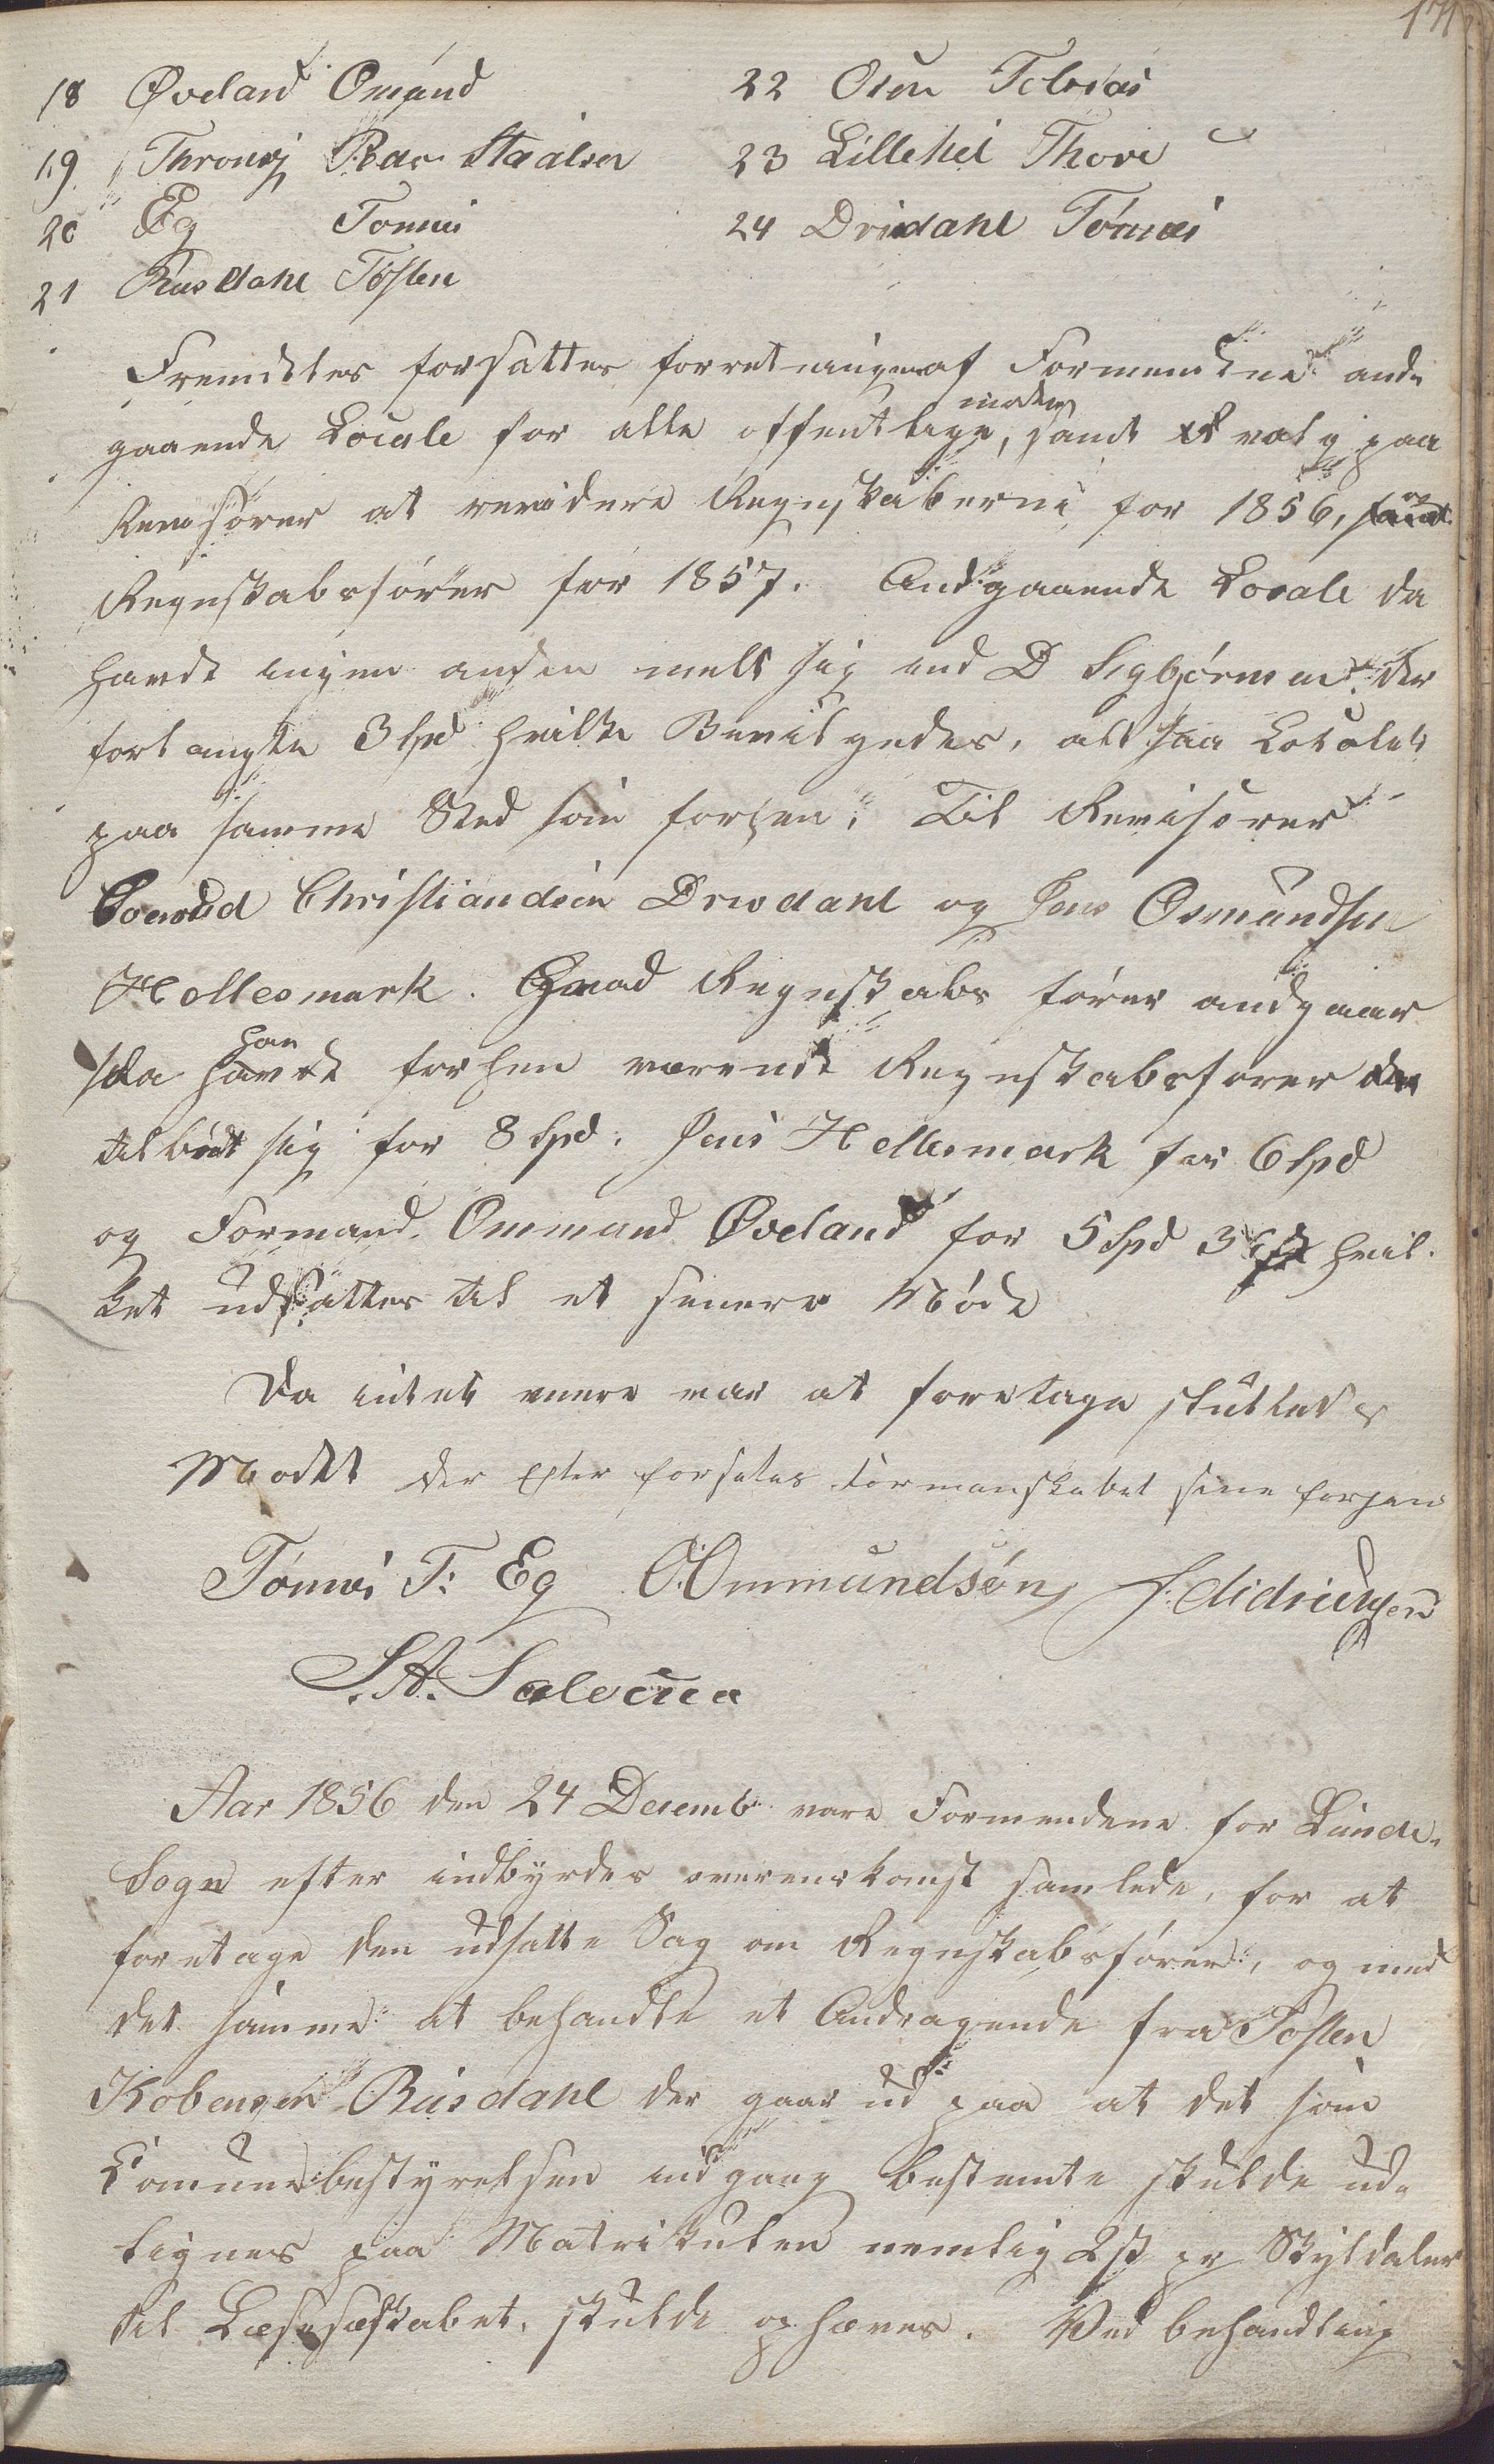 171
18 Øveland Omund
19 Thronvj Ras. Staalsen
20 Eg Tønnes
21 Rusdahl Tosten
22 Osen Tobias
23 Lillehei Thore
24 Dridahl Tønnes
Fremdeles forsattes forretningen af Formændene and-
gaaende Locale for alle offentlige møder, samt at valg paa
Revisører at revidere Regnskaberne for 1856, og
Regnskabsfører for 1857. Andgaaende Locale da
havde ingen anden meldt sig end D Sigbjørnsen der
forlangte 3 Spd hvilke Bevilgedes, altsaa Localet
paa samme Sted som forhen. Til Revisører
Christiandsen Drivdahl og Jens Osmundsen
Hellesmark. Hvad Regnskabs fører andgaar
da han forhen værende Regnskabsfører
tilbødt sig for 8 Spd. Jens Hellesmark for 6 Spd
og Formand Ommund Øveland for 5 Spd 3 hvil-
ket udsattes til et senere Møde
Da intet mere var at foretage sluttedes
Modet der efter forsetes formanskabet sine forhen
Tønnes T. Eg O. Ommundsøn J. Didricksen
S. A. Salvesen
Aar 1856 den 24 Desemb. vare Formendene for Lunde-
Sogn efter indbyrdes overenskomst samlede, for at
foretage den udsatte Sag om Regnskabsfører, og med
det samme at behandle et Andragende fra Tosten
Kobensen Rusdahl der gaar ud paa at det som
Comunebestyrelsen engang bestemte skulde ud-
lignes paa Matrikulen nemlig 2 s pr Skyldaler
til Læseselskabet, skulde ophæves. Ved behandling